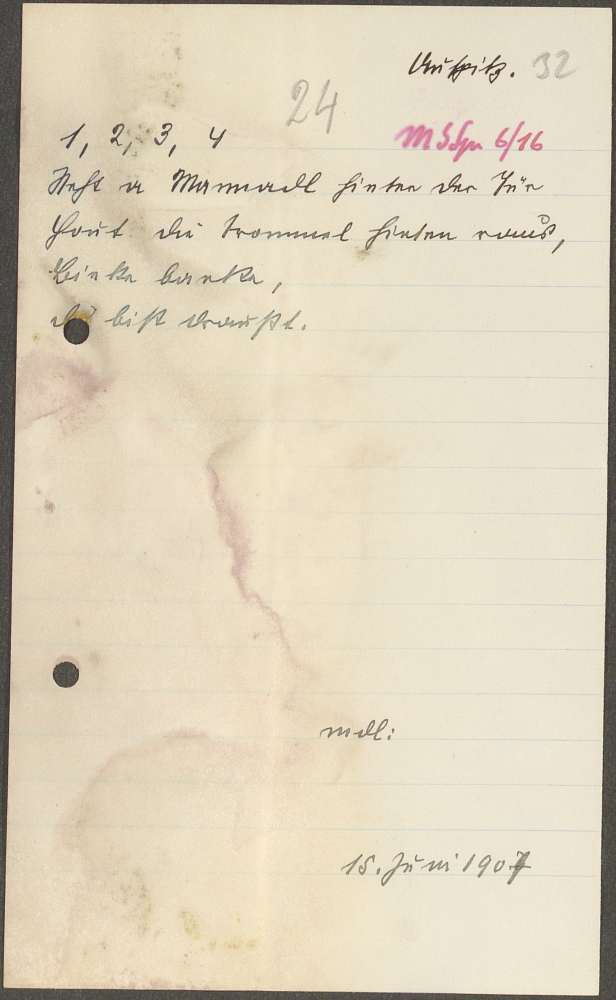 Auspitz. 32
24
1, 2, 3, 4
MSSpr 6/16
Steht a Mannadl hinter der Tür
Haut die Trommel hinten raus,
Binka banka,
du bist draußt.
mdl:
15. Juni 1907